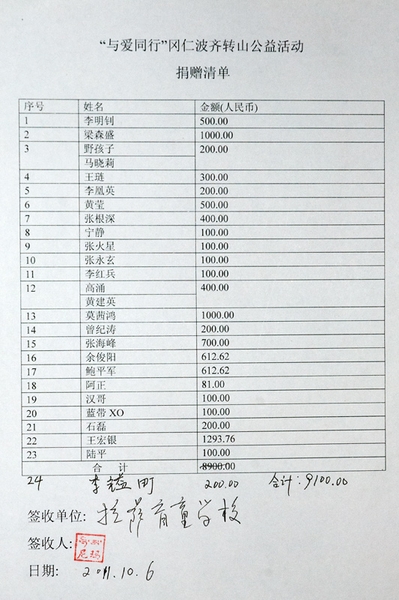 “与爱同行”冈仁波齐转山公益活动
捐赠清单
序号 姓名 金额(人民币)
1 李明钊 500.00
2 梁森盛 1000.00
3 野孩子 200.00
马晓莉
4 王琏 300.00
5 李凰英 200.00
6 黄莹 500.00
7 张根深 400.00
8 宁静 100.00
9 张火星 100.00
10 张永玄 100.00
11 李红兵 100.00
12 高涌 400.00
黄建英
13 莫茜鸿 1000.00
14 曾纪涛 200.00
15 张海峰 700.00
16 余俊阳 612.62
17 鲍平军 612.62
18 阿正 81.00
19 汉哥 100.00
20 蓝带 XO 100.00
21 石磊 200.00
22 王宏银 1293.76
23 陆平 100.00
合 计 8900.00
24 李 町 200.00 合计:9100.00
签收单位: 拉萨育童学校
签收人: 尼玛
日期: 2011.10.6